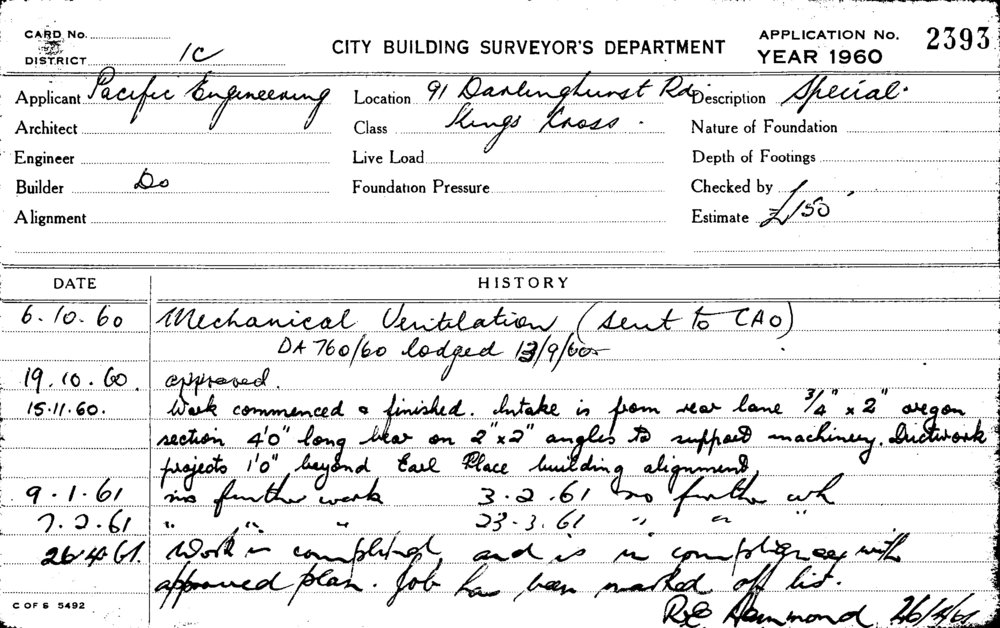 CARD No.
DISTRICT 1C
CITY BUILDING SURVEYOR'S DEPARTMENT
APPLICATION No. 2393
YEAR 1960
Applicant Pacific Engineering Location 91 Darlinghurst Rd Description Special.
Architect Class Kings Cross. Nature of Foundation
Engineer Live Load Depth of Footings
Builder Do Foundation Pressure Checked by
Alignment Estimate £150
DATE HISTORY
6.10.60 Mechanical Ventilation (sent to CAO)
DA 760/60 lodged 13/9/60
19.10.60. approved.
15.11.60. Work commenced & finished. Intake is from rear lane 3/4" x 2" oregon
section 4'0" long bear on 2"x2" angles to support machinery. Ductwork
projects 1'0" beyond Earl Place building alignment
9.1.61 no further work 3.2.61 no further wk
7.2.61 " " " 23.3.61 " " "
26.4.61. Work is completed, and is in compliance with
approved plan. Job has been marked off list.
R.E. Hammond 26/4/61
C OF S 5492